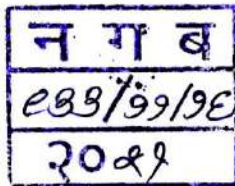 न ग ब
९३३/११/१६
२०२१